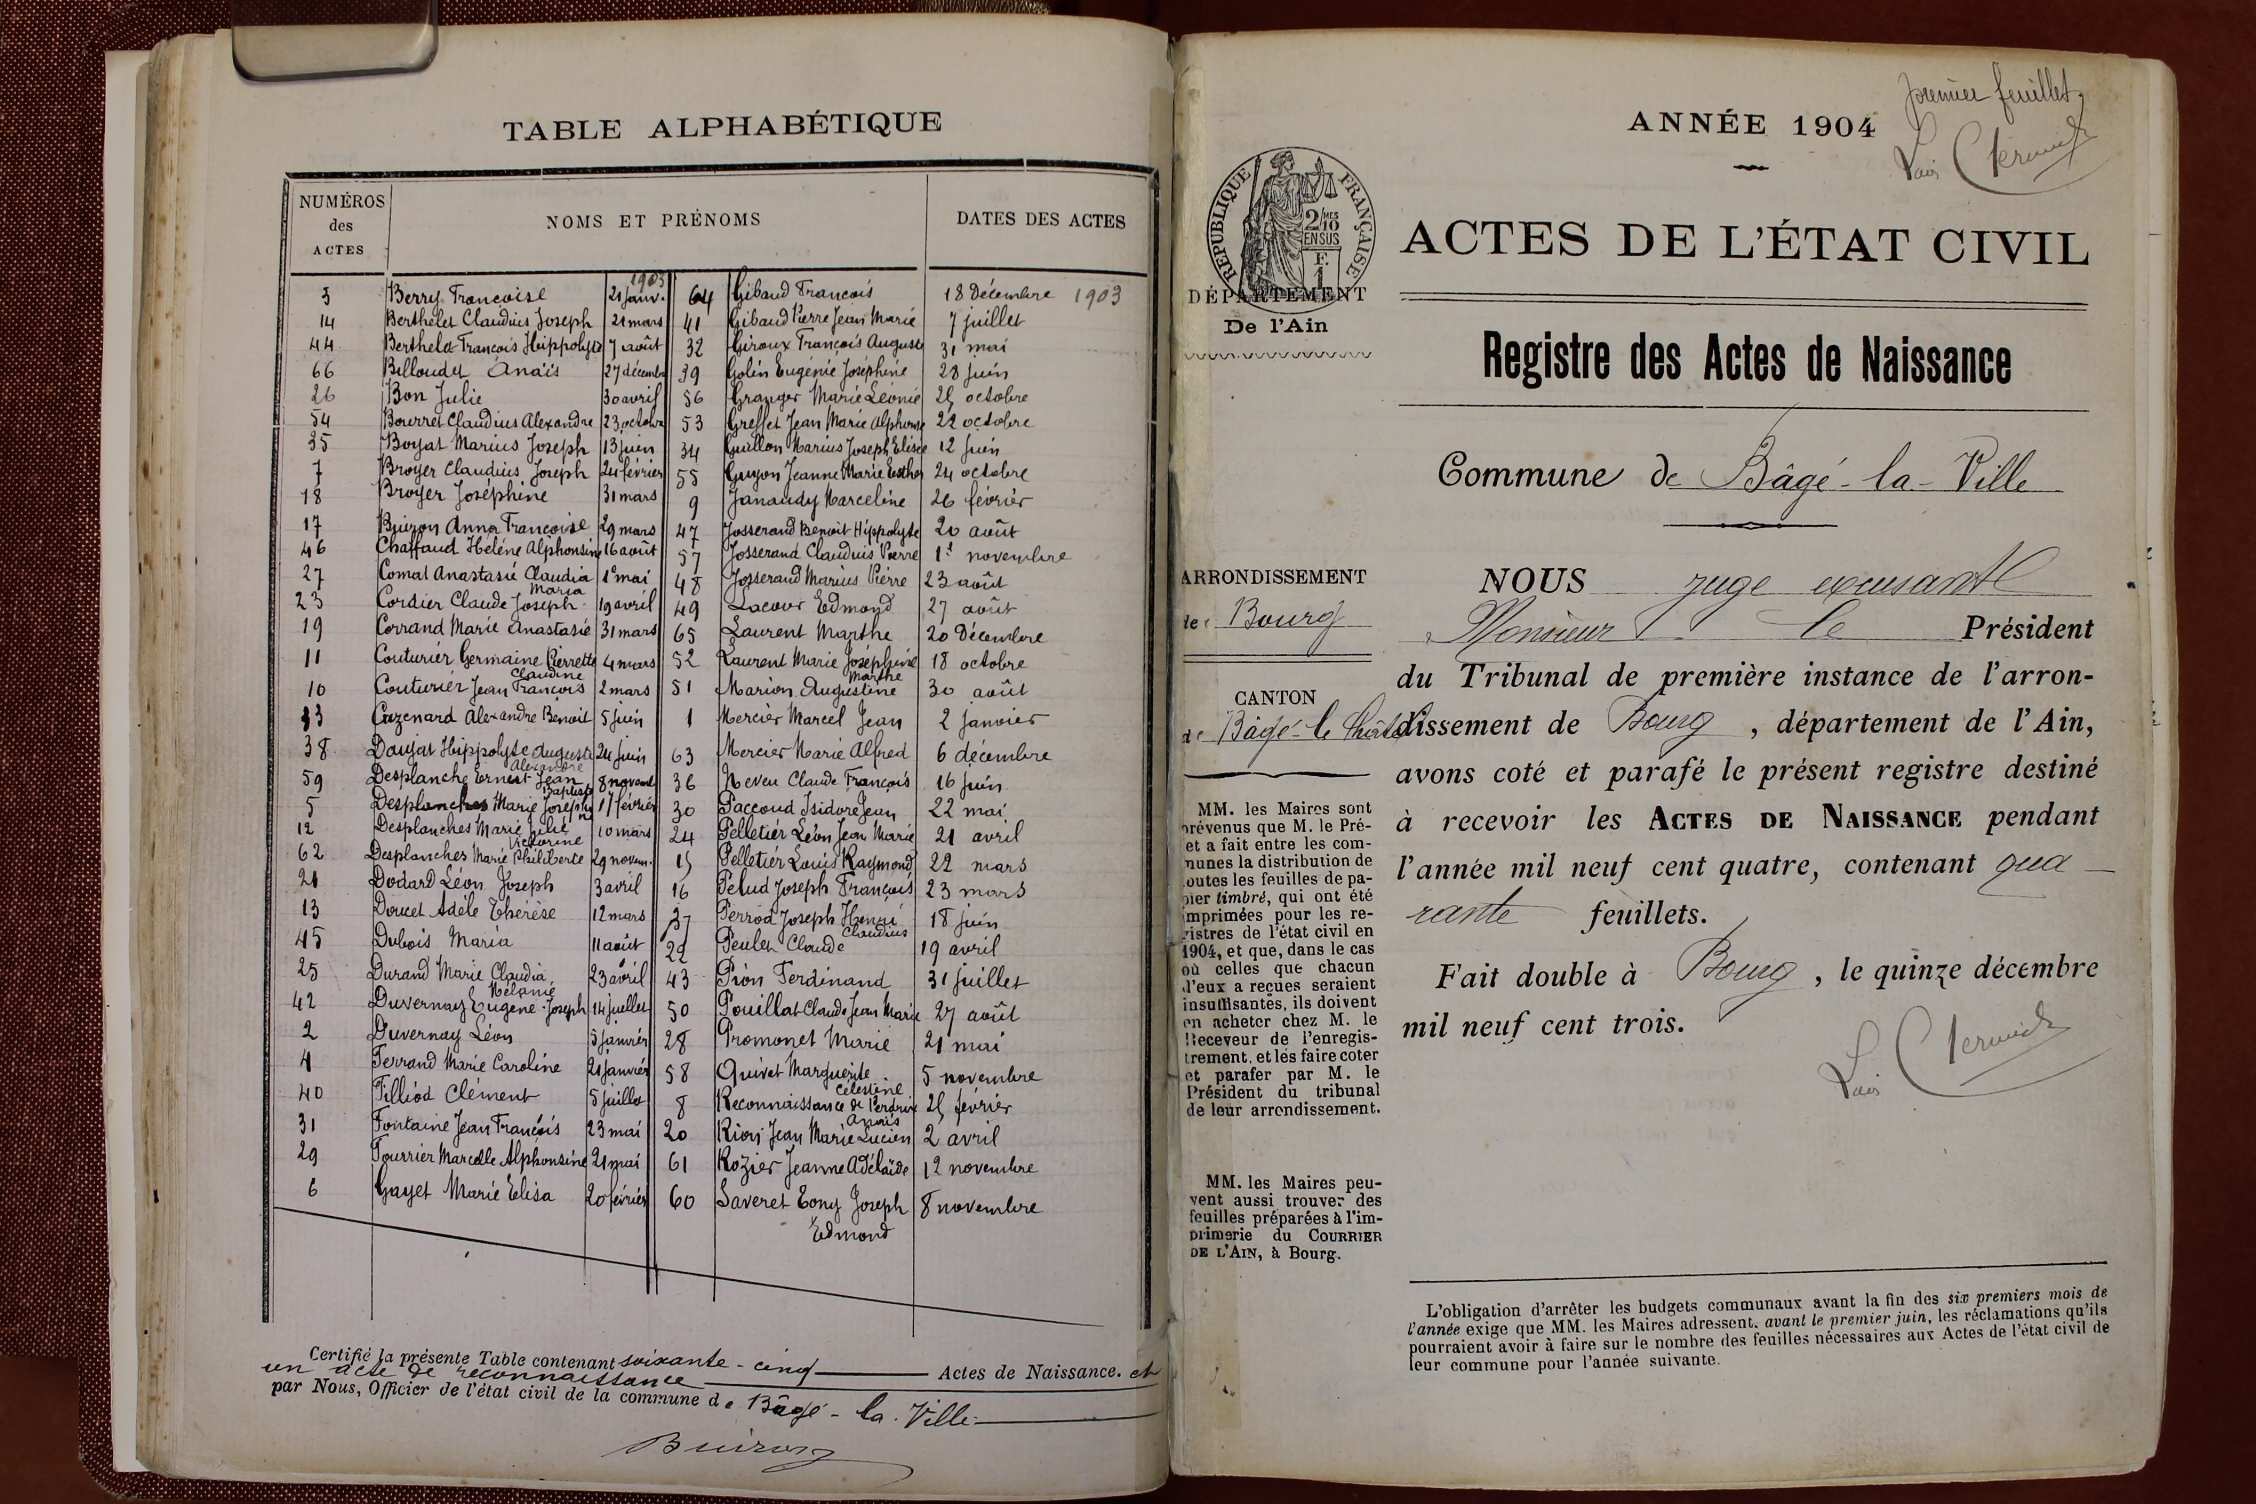 TABLE ALPHABÉTIQUE
NUMÉROS des ACTES
NOMS ET PRÉNOMS
DATES DES ACTES
1903
3 Berry Françoise 21 janv.
14 Berthelet Claudius Joseph 21 mars
44 Berthelet François Hippolyte 7 août
66 Billoudet Anaïs 27 décembre
26 Bon Julie 30 avril
54 Bourret Claudius Alexandre 23 octobre
35 Boyat Marius Joseph 13 juin
7 Broyer Claudius Joseph 24 février
18 Broyer Joséphine 31 mars
17 Buiron Anna Françoise 29 mars
46 Chaffaud Hélène Alphonsine 16 août
27 Comat Anastasie Claudia Maria 1er mai
23 Cordier Claude Joseph 19 avril
19 Corrand Marie Anastasie 31 mars
11 Couturier Germaine Pierrette Claudine 4 mars
10 Couturier Jean François 2 mars
33 Cuzenard Alexandre Benoit 5 juin
38 Daujat Hippolyte Auguste Alexandre 24 juin
59 Desplanche Ernest Jean Baptiste 8 novemb
5 Desplanches Marie Joséphine 17 février
12 Desplanches Marie Julie Victorine 10 mars
62 Desplanches Marie Philiberte 29 novem.
21 Dodard Léon Joseph 3 avril
13 Doucet Adèle Thérèse 12 mars
45 Dubois Maria 11 août
25 Durand Marie Claudia Mélanie 23 avril
42 Duvernay Eugène Joseph 14 juillet
2 Duvernay Léon 5 janvier
4 Ferrand Marie Caroline 21 janvier
40 Filliod Clément 5 juillet
31 Fontaine Jean François 23 mai
29 Fourrier Marcelle Alphonsine 21 mai
6 Gayet Marie Elisa 20 février
64 Gibaud François 18 Décembre 1903
41 Gibaud Pierre Jean Marie 7 juillet
32 Giroux François Auguste 31 mai
39 Golin Eugénie Joséphine 28 juin
56 Granger Marie Léonie 25 octobre
53 Greffet Jean Marie Alphonse 22 octobre
34 Guillon Marius Joseph Elisée 12 juin
55 Guyon Jeanne Marie Esther 24 octobre
9 Janaudy Marceline 26 février
47 Josserand Benoit Hippolyte 20 août
57 Josserand Claudius Pierre 1er novembre
48 Josserand Marius Pierre 23 août
49 Lacour Edmond 27 août
65 Laurent Marthe 20 Décembre
52 Laurent Marie Joséphine Marthe 18 octobre
51 Marion Augustine 30 août
1 Mercier Marcel Jean 2 janvier
63 Mercier Marie Alfred 6 décembre
36 Neveu Claude François 16 juin
30 Paccoud Isidore Jean 22 mai
24 Pelletier Léon Jean Marie 21 avril
15 Pelletier Louis Raymond 22 mars
16 Pelud Joseph François 23 mars
37 Perrod Joseph Henri Claudius 18 juin
22 Peulet Claude 19 avril
43 Pion Ferdinand 31 juillet
50 Pouillat Claude Jean Marie 27 août
28 Promonet Marie 21 mai
58 Quivet Marguerite Célestine 5 novembre
8 Reconnaissance de Perdrix Anaïs 25 février
20 Rion Jean Marie Lucien 2 avril
61 Rozier Jeanne Adélaïde 12 novembre
60 Saveret Tony Joseph Edmond 8 novembre
Certifié la présente Table contenant soixante-cinq Actes de Naissance. et
un acte de reconnaissance
par Nous, Officier de l'état civil de la commune de Bâgé-la-Ville
Buiron
premier feuillet.
ANNÉE 1904
RÉPUBLIQUE FRANÇAISE
2/10 MES
EN SUS
F.
1
ACTES DE L'ÉTAT CIVIL
DÉPARTEMENT
De l'Ain
Registre des Actes de Naissance
Commune de Bâgé-la-Ville
ARRONDISSEMENT
de Bourg
CANTON
de Bâgé-le-Châtel
NOUS juge
Monsieur le Président
du Tribunal de première instance de l'arron-
dissement de Bourg, département de l'Ain,
avons coté et parafé le présent registre destiné
à recevoir les ACTES DE NAISSANCE pendant
l'année mil neuf cent quatre, contenant qua-
rante feuillets.
Fait double à Bourg, le quinze décembre
mil neuf cent trois.
MM. les Maires sont
prévenus que M. le Pré-
et a fait entre les com-
munes la distribution de
toutes les feuilles de pa-
pier timbré, qui ont été
imprimées pour les re-
gistres de l'état civil en
1904, et que, dans le cas
où celles que chacun
d'eux a reçues seraient
insuffisantes, ils doivent
en acheter chez M. le
Receveur de l'enregis-
trement, et les faire coter
et parafer par M. le
Président du tribunal
de leur arrondissement.
MM. les Maires peu-
vent aussi trouver des
feuilles préparées à l'im-
primerie du COURRIER
DE L'AIN, à Bourg.
L'obligation d'arrêter les budgets communaux avant la fin des six premiers mois de
l'année exige que MM. les Maires adressent, avant le premier juin, les réclamations qu'ils
pourraient avoir à faire sur le nombre des feuilles nécessaires aux Actes de l'état civil de
leur commune pour l'année suivante.